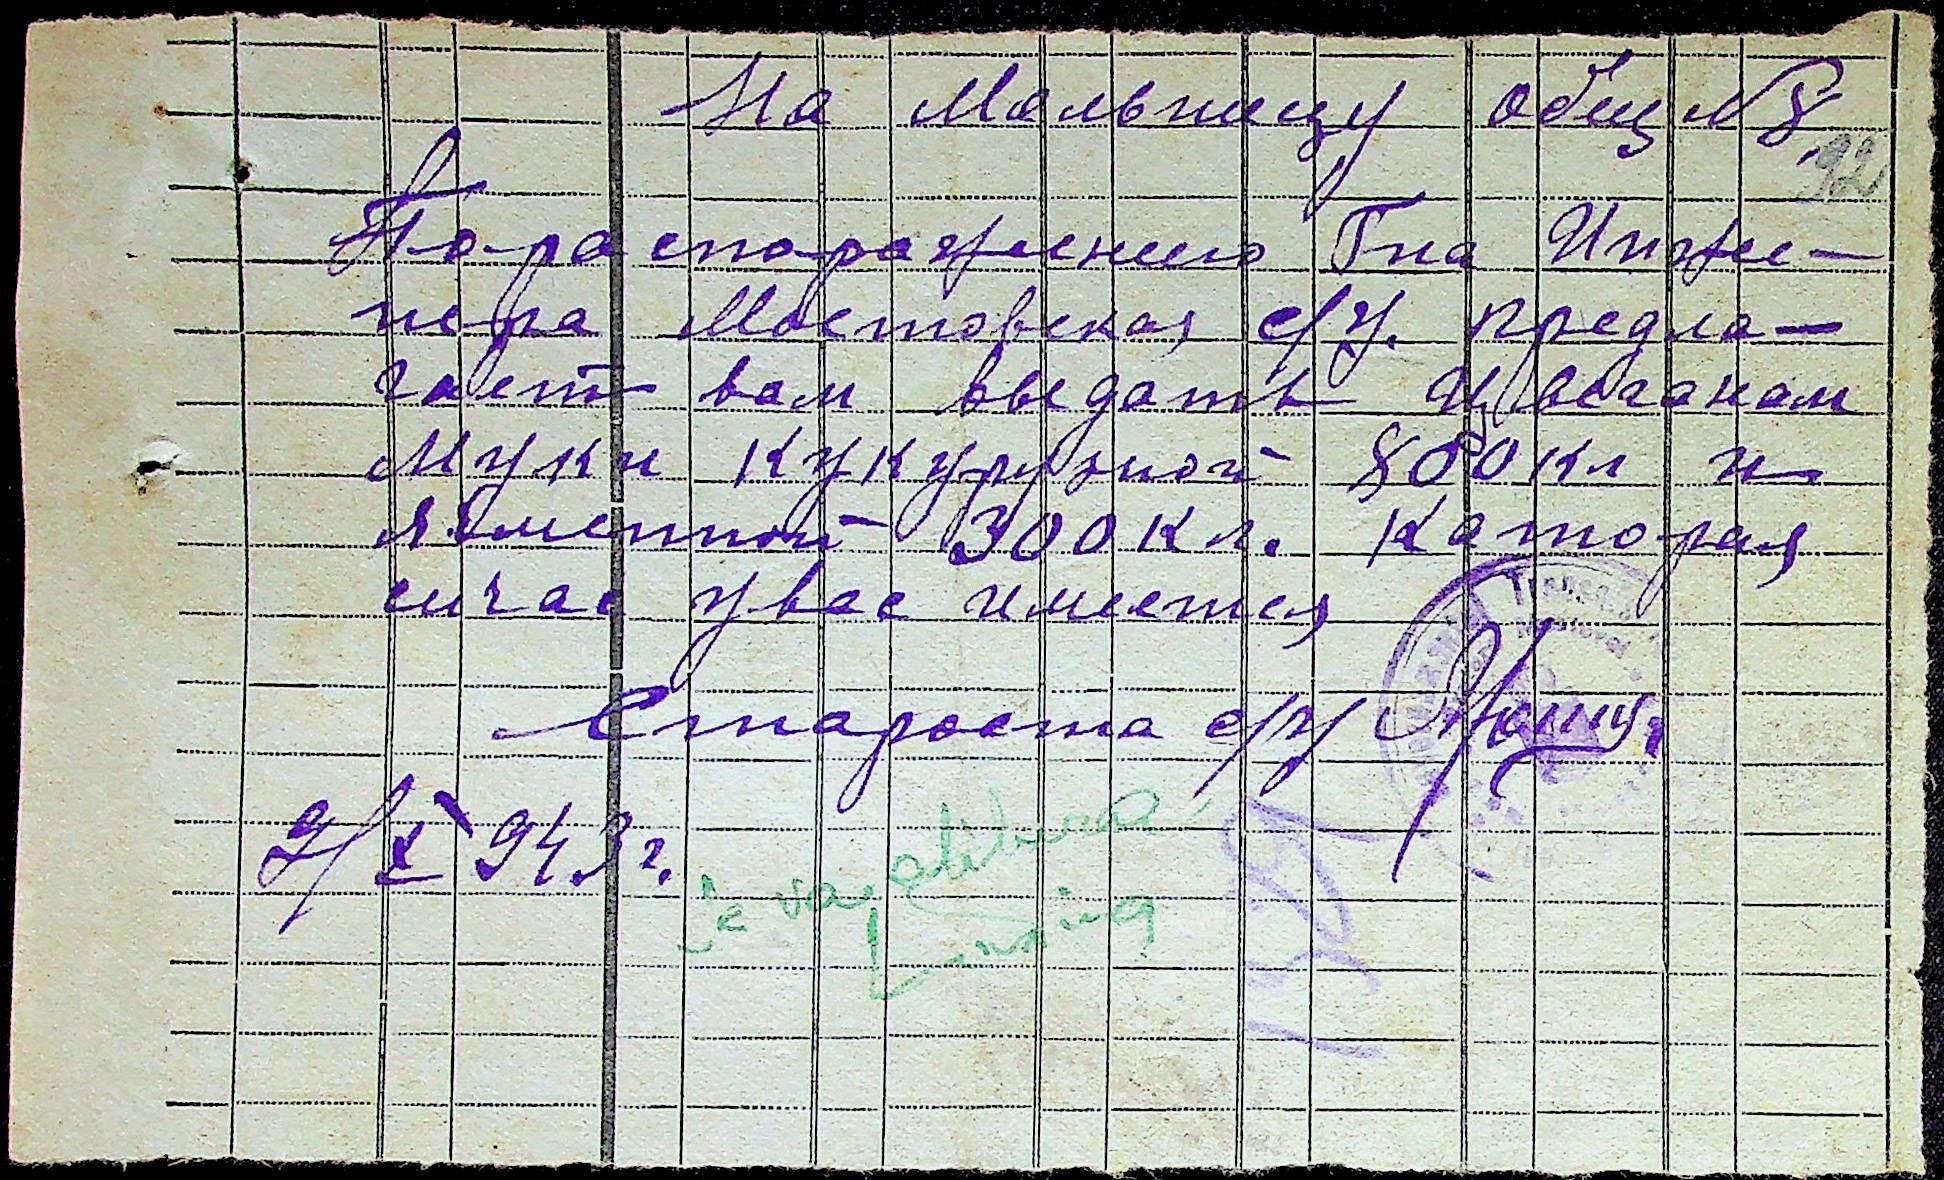 На Мельницу общ №8
92
По распоражению Гна Инже-
нера Мостовская с/у. предла-
гает вам выдать Цыганам
Муки кукурузной 800 кл и
ячменной 300 кл. каторая
сичас у вас имеется
Староста с/у
9/X 943 г.